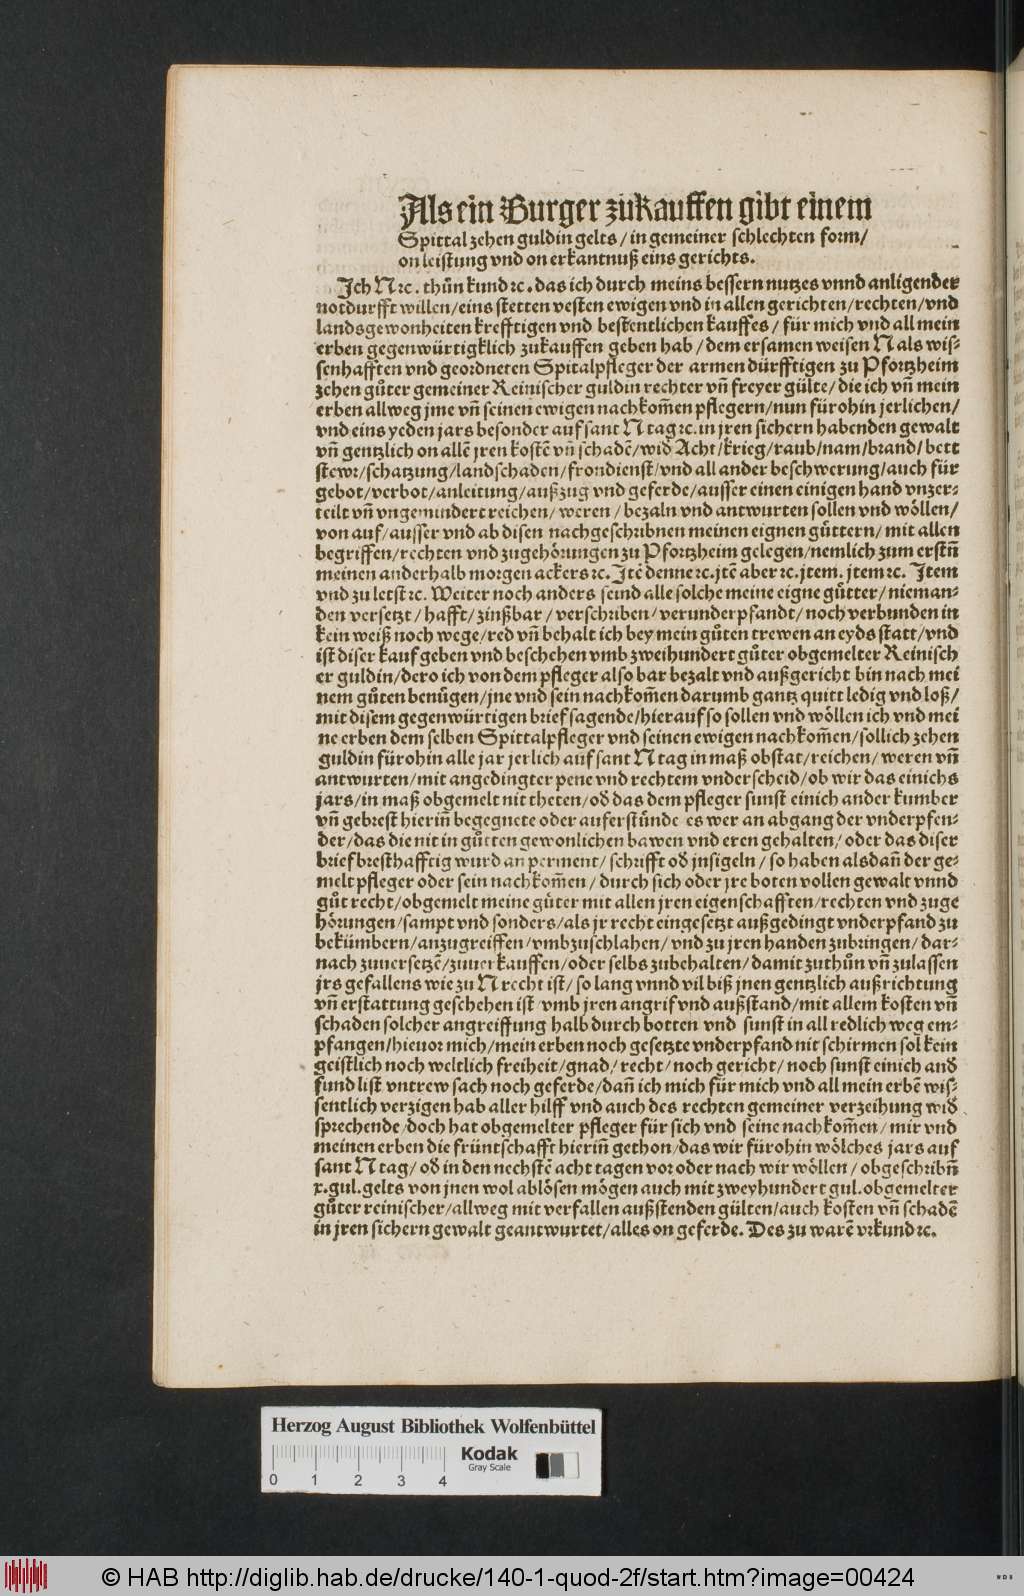 Als ein Burger zůkauffen gibt einem
Spittal zehen guldin gelts / in gemeiner schlechten form /
on leistung vnd on erkantnuß eins gerichts.
Ich N ꝛc. thůn kund ꝛc. das ich durch meins bessern nutzes vnnd anligender
notdurfft willen / eins stetten vesten ewigen vnd in allen gerichten / rechten / vnd
landsgewonheiten krefftigen vnd bestentlichen kauffes / für mich vnd all mein
erben gegenwürtigklich zukauffen geben hab / dem ersamen weisen N als wis⸗
senhafften vnd geordneten Spitalpfleger der armen dürfftigen zu Pfortzheim
zehen gůter gemeiner Reinischer guldin rechter vñ freyer gülte / die ich vñ mein
erben allweg jme vñ seinen ewigen nachkom̃en pflegern / nun fürohin jerlichen /
vnd eins yeden jars besonder auf sant N tag ꝛc. in jren sichern habenden gewalt
vñ gentzlich on allẽ jren kostẽ vñ schadẽ / wid̕ Acht / krieg / raub / nam / brand / bett
stewr / schatzung / landschaden / frondienst / vnd all ander beschwerung / auch für
gebot / verbot / anleitung / außzug vnd geferde / ausser einen einigen hand vnzer⸗
teilt vñ vngemindert reichen / weren / bezaln vnd antwurten sollen vnd wöllen /
von auf / ausser vnd ab disen nachgeschribnen meinen eignen güttern / mit allen
begriffen / rechten vnd zugehörungen zu Pfortzheim gelegen / nemlich zum erstñ
meinen anderhalb morgen ackers ꝛc. Itẽ denne ꝛc. jtẽ aber ꝛc. jtem. jtem ꝛc. Item
vnd zu letst ꝛc. Weiter noch anders seind alle solche meine eigne gůtter / nieman⸗
den versetzt / hafft / zinßbar / verschriben / verunderpfandt / noch verbunden in
kein weiß noch wege / red vñ behalt ich bey mein gůten trewen an eyds statt / vnd
ist diser kauf geben vnd beschehen vmb zweihundert gůter obgemelter Reinisch
er guldin / dero ich von dem pfleger also bar bezalt vnd außgericht bin nach mei
nem gůten benügen / jne vnd sein nachkom̃en darumb gantz quitt ledig vnd loß /
mit disem gegenwürtigen brief sagende / hierauf so sollen vnd wöllen ich vnd mei
ne erben dem selben Spittalpfleger vnd seinen ewigen nachkom̃en / sollich zehen
guldin fürohin alle jar jerlich auf sant N tag in maß obstat / reichen / weren vñ
antwurten / mit angedingter pene vnd rechtem vnderscheid / ob wir das einichs
jars / in maß obgemelt nit theten / od̕ das dem pfleger sunst einich ander kumber
vñ gebrest hieriñ begegnete oder auferstünde es wer an abgang der vnderpfen⸗
der / das die nit in gůtten gewonlichen bawen vnd eren gehalten / oder das diser
brief bresthafftig wurd an perment / schrifft od̕ jnsigeln / so haben alsdañ der ge⸗
melt pfleger oder sein nachkom̃en / durch sich oder jre boten vollen gewalt vnnd
gůt recht / obgemelt meine gůter mit allen jren eigenschafften / rechten vnd zuge
hörungen / sampt vnd sonders / als jr recht eingesetzt außgedingt vnderpfand zu
bekümbern / anzugreiffen / vmbzuschlahen / vnd zu jren handen zubringen / dar⸗
nach zuuersetzẽ / zuuerkauffen / oder selbs zubehalten / damit zuthůn vñ zulassen
jrs gefallens wie zu N recht ist / so lang vnnd vil biß jnen gentzlich außrichtung
vñ erstattung geschehen ist vmb jren angrif vnd außstand / mit allem kosten vñ
schaden solcher angreiffung halb durch botten vnd sunst in all redlich weg em⸗
pfangen / hieuor mich / mein erben noch gesetzte vnderpfand nit schirmen sol kein
geistlich noch weltlich freiheit / gnad / recht / noch gericht / noch sunst einich and̕
fund list vntrew sach noch geferde / dañ ich mich für mich vnd all mein erbẽ wis⸗
sentlich verzigen hab aller hilff vnd auch des rechten gemeiner verzeihung wid̕
sprechende / doch hat obgemelter pfleger für sich vnd seine nachkom̃en / mir vnd
meinen erben die früntschafft hieriñ gethon / das wir fürohin wölches jars auf
sant N tag / od̕ in den nechstẽ acht tagen vor oder nach wir wöllen / obgeschribñ
x. gul. gelts von jnen wol ablösen mögen auch mit zweyhundert gul. obgemelter
gůter reinischer / allweg mit verfallen außstenden gülten / auch kosten vñ schadẽ
in jren sichern gewalt geantwurtet / alles on geferde. Des zu warẽ vrkund ꝛc.
Herzog August Bibliothek Wolfenbüttel
Kodak
Gray Scale
0 1 2 3 4
© HAB http://diglib.hab.de/drucke/140-1-quod-2f/start.htm?image=00424